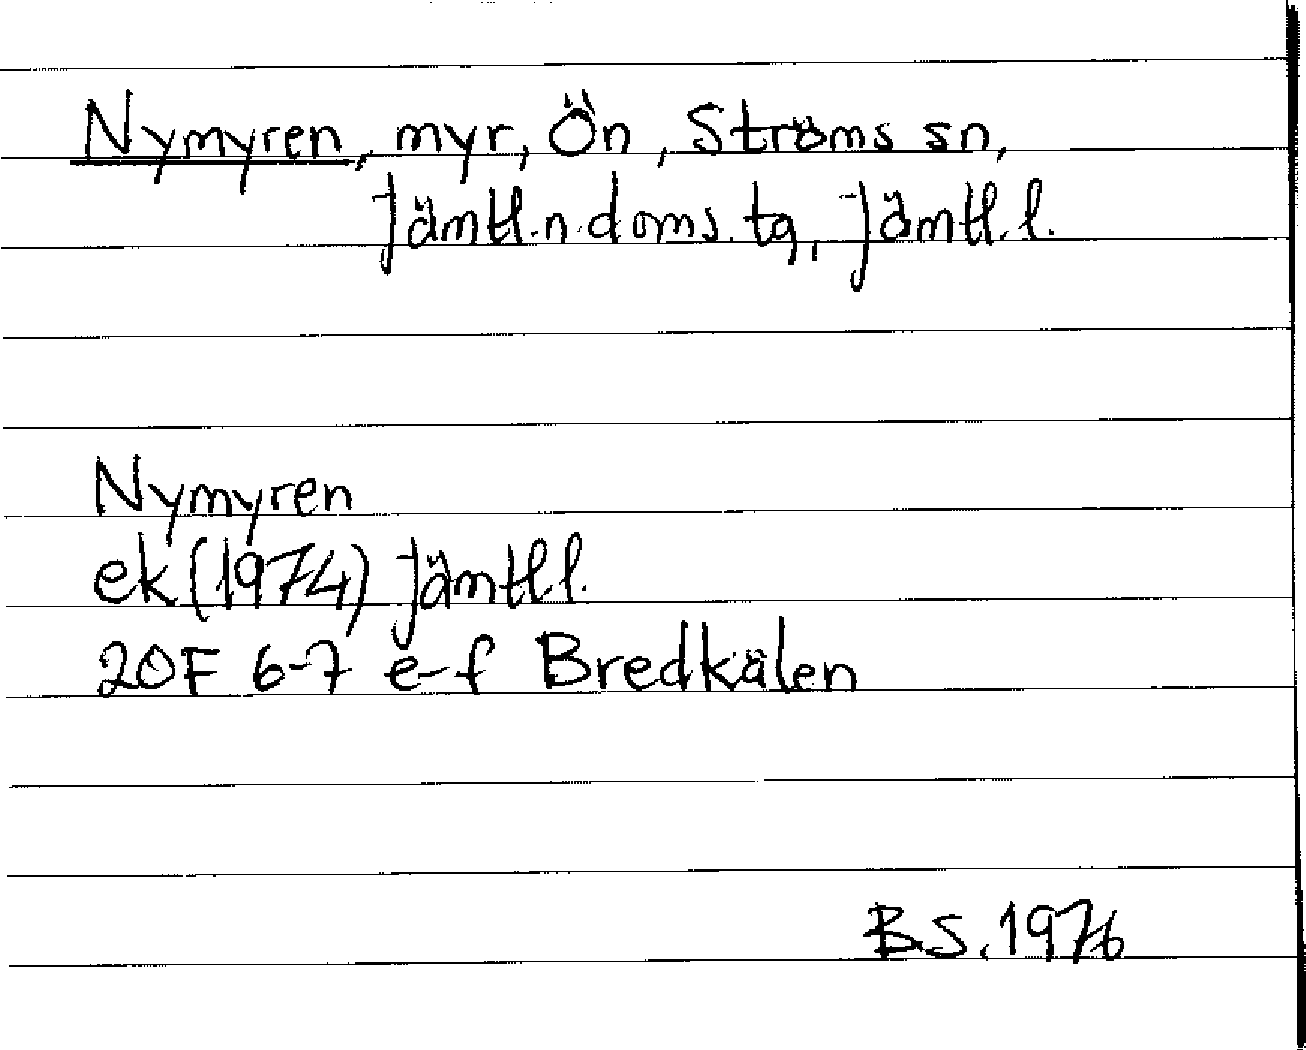 Nymyren, myr, Ön, Ströms sn,
Jämtl.n.doms.tg, Jämtl.l.
Nymyren
ek (1974) Jämtl.l.
20F 6-7 e-f Bredkälen
B.S. 1976